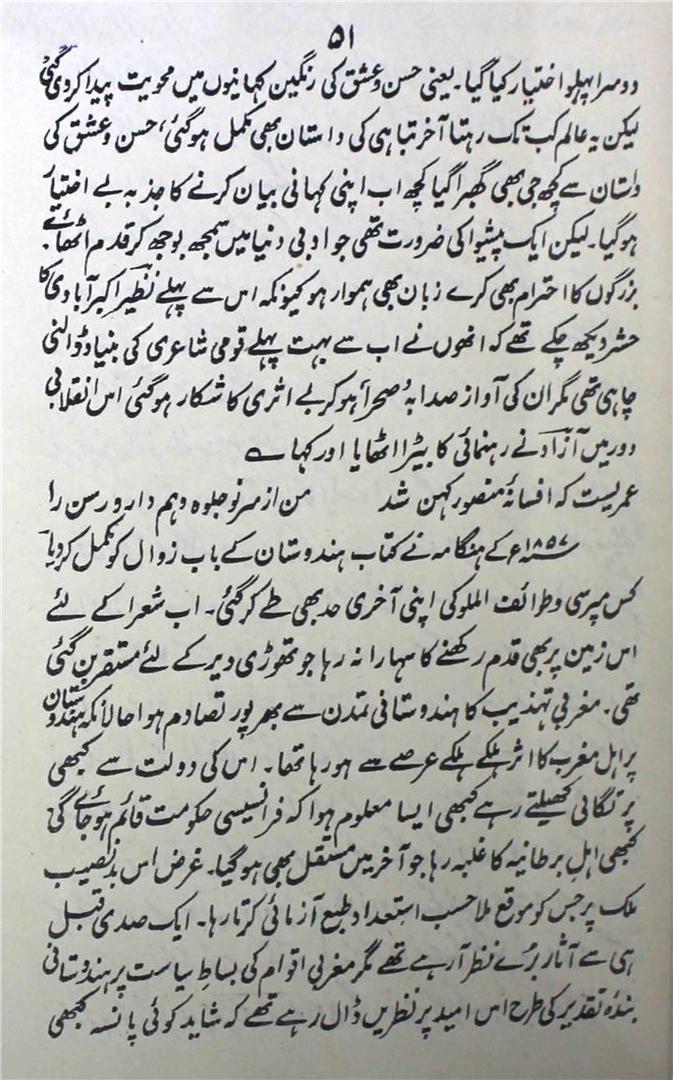 ۵۱
دوسرا پہلو اختیار کیا گیا۔ یعنی حسن و عشق کی رنگین کہانیوں میں محویت پیدا کر دی گئی
لیکن یہ عالم کب تک رہتا آخر تباہی کی داستان بھی مکمل ہو گئی، حسن و عشق کی
داستان سے کچھ جی بھی گھبرا گیا کچھ اب اپنی کہانی بیان کرنے کا جذبہ بے اختیار
ہو گیا۔ لیکن ایک پیشوا کی ضرورت تھی جو ادبی دنیا میں سمجھ بوجھ کر قدم اٹھائے۔
بزرگوں کا احترام بھی کرے زبان بھی ہموار ہو کیونکہ اس سے پہلے نظیرؔ اکبر آبادی کا
حشر دیکھ چکے تھے کہ انھوں نے اب سے بہت پہلے قومی شاعری کی بنیاد ڈالنی
چاہی تھی مگر ان کی آواز صدا بہ صحرا ہو کر بے اثری کا شکار ہو گئی اس انقلابی
دور میں آزادؔ نے رہنمائی کا بیڑا اٹھایا اور کہا ؎
عمریست کہ افسانۂ منصور کہن شد من از سر نو جلوہ دہم دار و رسن را
۱۸۵۷ء کے ہنگامہ نے کتاب ہندوستان کے باب زوال کو مکمل کر دیا
کس مپرسی و طرائف الملوکی اپنی آخری حد بھی طے کر گئی۔ اب شعرا کے لئے
اس زمین پر بھی قدم رکھنے کا سہارا نہ رہا جو تھوڑی دیر کے لئے مستقر بن گئی
تھی۔ مغربی تہذیب کا ہندوستانی تمدن سے بھرپور تصادم ہوا حالانکہ ہندوستان
پر اہل مغرب کا اثر ہلکے ہلکے عرصے سے ہو رہا تھا۔ اس کی دولت سے کبھی
پرتگالی کھیلتے رہے کبھی ایسا معلوم ہوا کہ فرانسیسی حکومت قائم ہو جائے گی
کبھی اہل برطانیہ کا غلبہ رہا جو آخر میں مستقل بھی ہو گیا۔ غرض اس بد نصیب
ملک پر جس کو موقع ملا حسب استعداد طبع آزمائی کرتا رہا۔ ایک صدی قبل
ہی سے آثار برے نظر آ رہے تھے مگر مغربی اقوام کی بساط سیاست پر ہندوستانی
بندۂ تقدیر کی طرح اس امید پر نظریں ڈال رہے تھے کہ شاید کوئی پانسہ کبھی